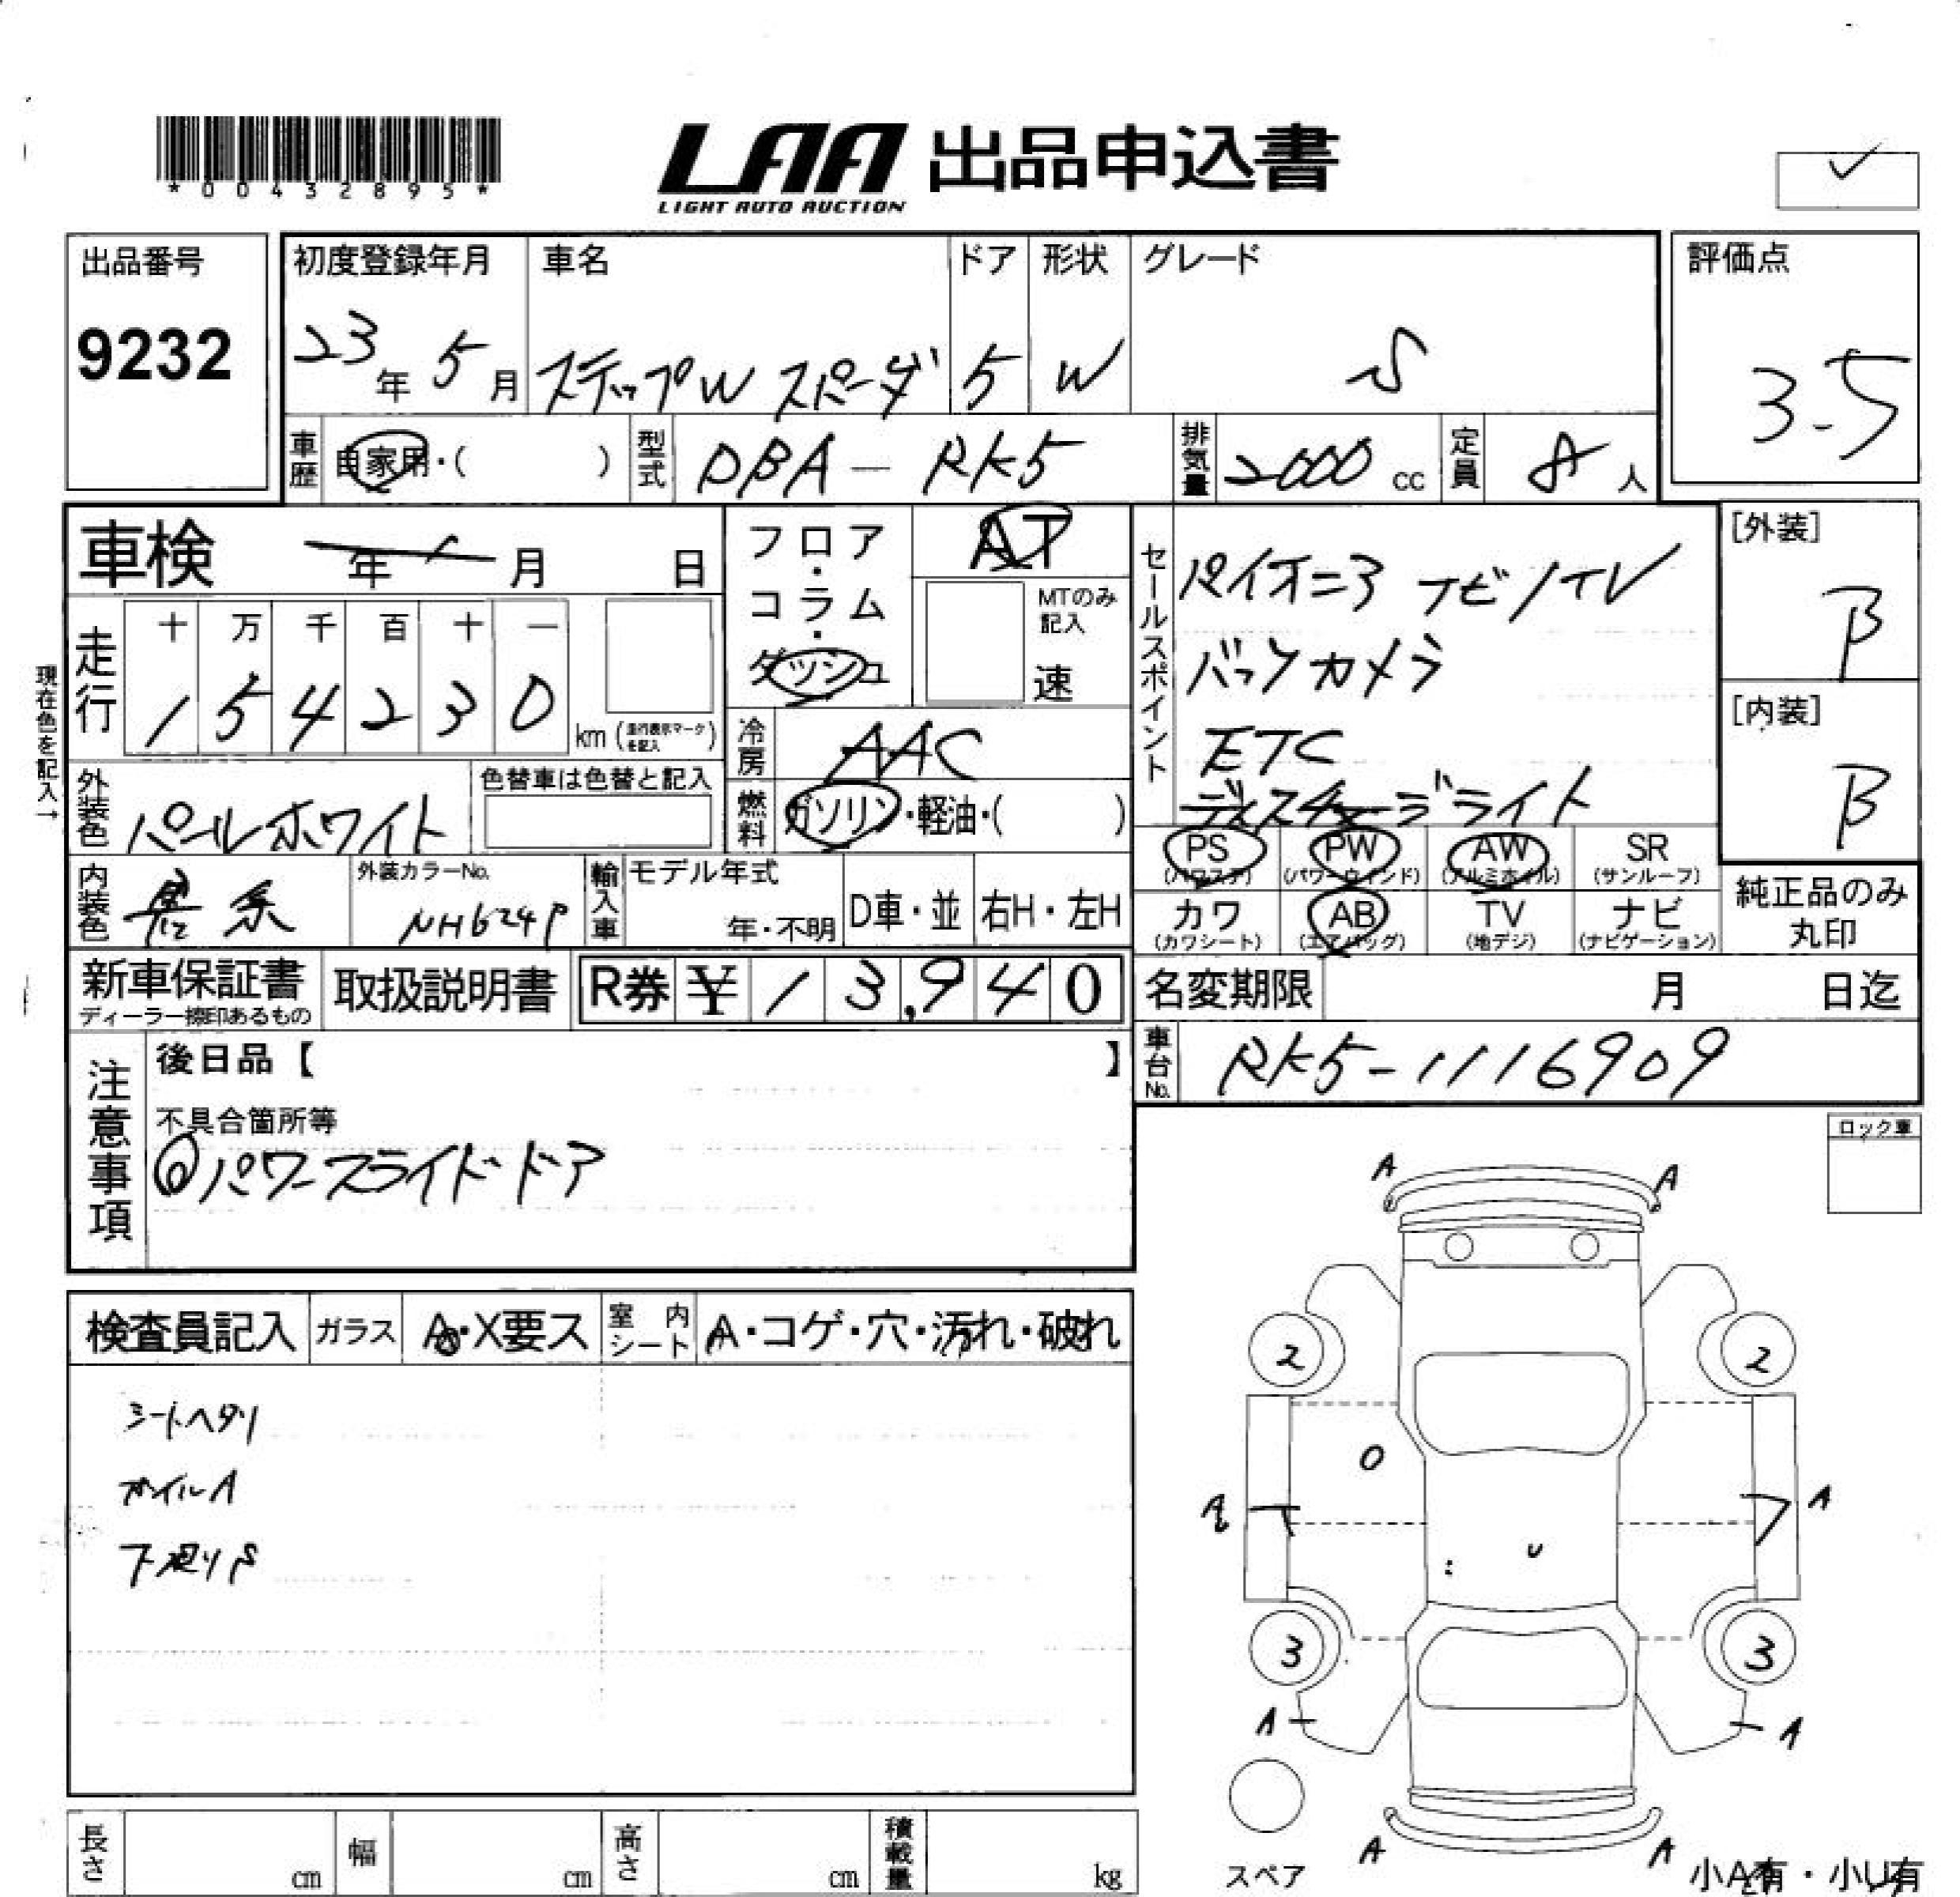 *00432895*
LAA 出品申込書
LIGHT AUTO AUCTION
出品番号 初度登録年月 車名 ドア 形状 グレード 評価点
9232 23年 5月 ステップW スパーダ 5 W S 3.5
車歴 自家用・( ) 型式 DBA-RK5 排気量 2000 cc 定員 8 人
車検 年 月 日
フロア・コラム・ダッシュ AT
MTのみ記入 速
セールスポイント パイオニア ナビ/TV
バックカメラ
ETC
ディスチャージライト
[外装] B
[内装] B
現在色を記入→
走行 十 万 千 百 十 一
1 5 4 2 3 0 km (走行表示マークを記入)
冷房 AAC
燃料 ガソリン・軽油・( )
外装色 パールホワイト 色替車は色替と記入
内装色 黒系 外装カラーNo. NH624P 輸入車 モデル年式 年・不明 D車・並 右H・左H
PS (パワステ) PW (パワーウィンド) AW (アルミホイル) SR (サンルーフ)
カワ (カワシート) AB (エアバッグ) TV (地デジ) ナビ (ナビゲーション)
純正品のみ丸印
新車保証書 ディーラー捺印あるもの 取扱説明書 R券 ¥ 13,940 名変期限 月 日迄
車台No. RK5-1116909
注意事項 後日品【 】
不具合箇所等
パワースライドドア
ロック車
検査員記入 ガラス A・X要ス 室内シート A・コゲ・穴・汚れ・破れ
シートヘタリ
ホイルA
下廻りS
A A
2 2
A
U
3 3
A A
A A
スペア
小A有・小U有
長さ cm 幅 cm 高さ cm 積載量 kg